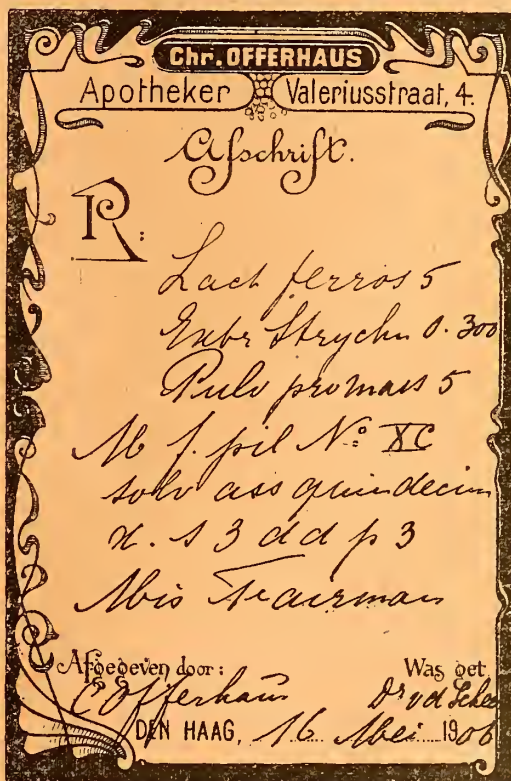 Chr. OFFERHAUS
Apotheker Valeriusstraat, 4.
Afschrift.
R:
Lact ferros 5
Extr Strychn 0.300
Pulv pro mass 5
M f. pil No XC
solv ass quindecim
d. s 3 d d p 3
Miss
Afgegeven door: Was get.
C Offerhaus Dr v d
DEN HAAG, 16 Mei 1906